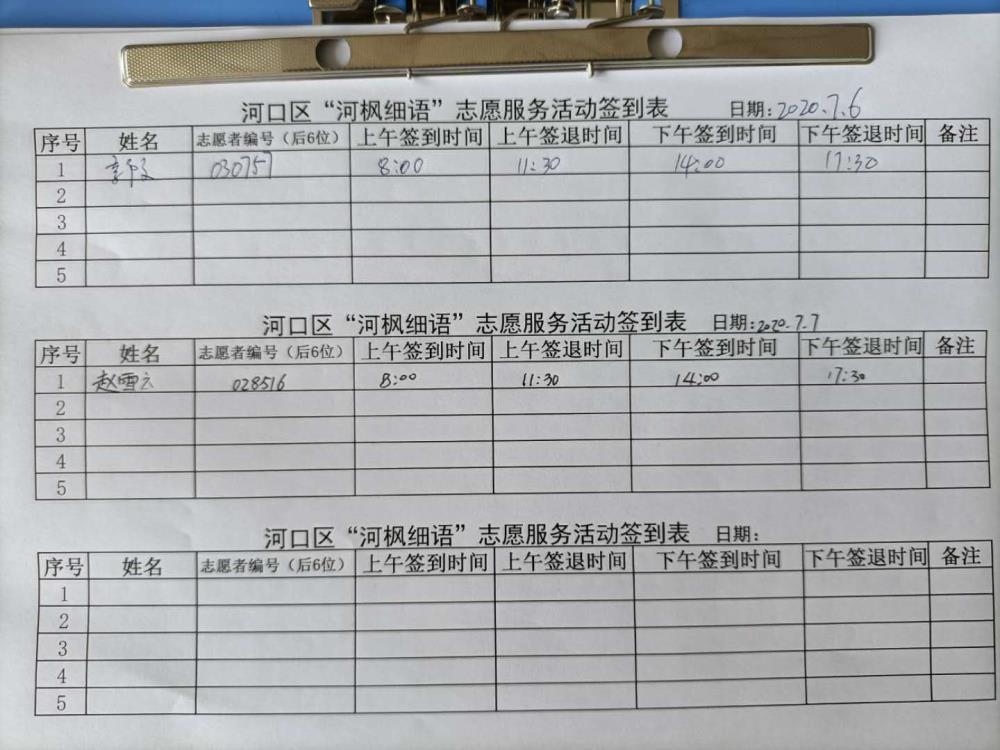 河口区“河枫细语”志愿服务活动签到表 日期:2020.7.6
序号 姓名 志愿者编号（后6位） 上午签到时间 上午签退时间 下午签到时间 下午签退时间 备注
1 030757 8:00 11:30 14:00 17:30
2
3
4
5
河口区“河枫细语”志愿服务活动签到表 日期:2020.7.7
序号 姓名 志愿者编号（后6位） 上午签到时间 上午签退时间 下午签到时间 下午签退时间 备注
1 赵雪云 028516 8:00 11:30 14:00 17:30
2
3
4
5
河口区“河枫细语”志愿服务活动签到表 日期:
序号 姓名 志愿者编号（后6位） 上午签到时间 上午签退时间 下午签到时间 下午签退时间 备注
1
2
3
4
5